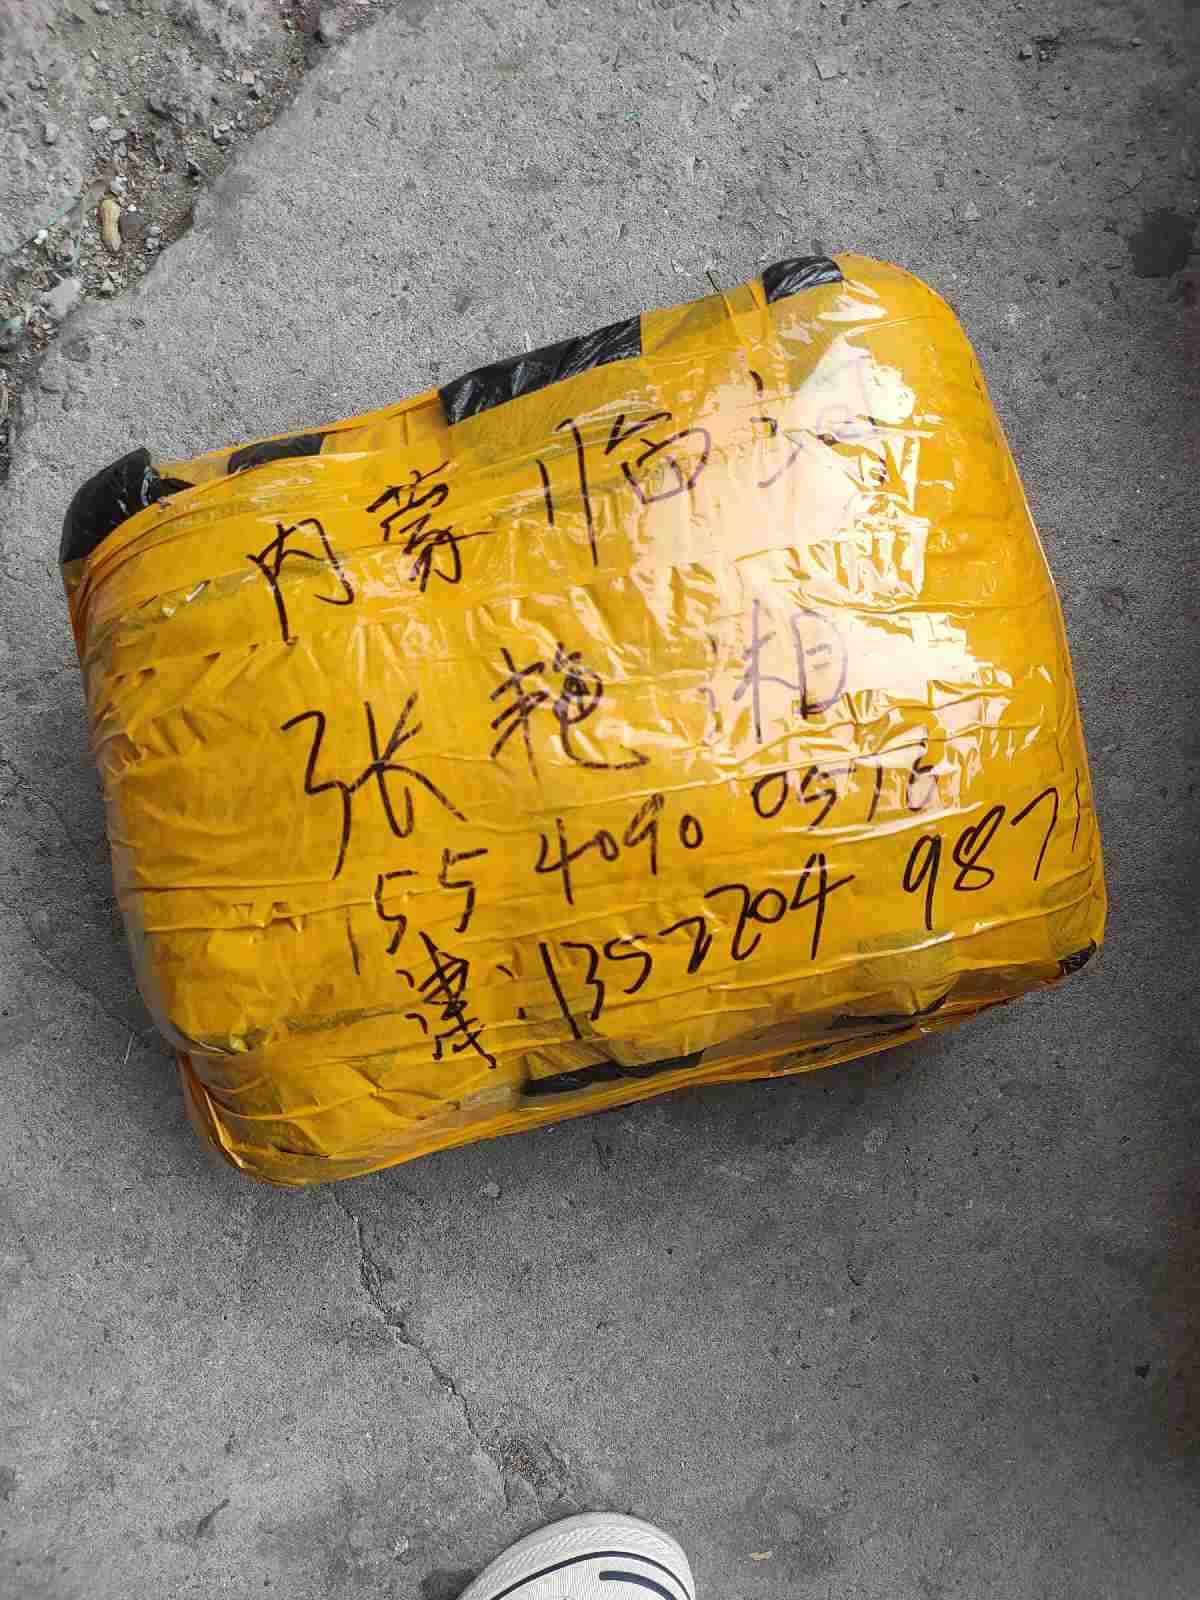 内蒙 临河
张艳湘
155 4090 0578
津:135 2204 9871